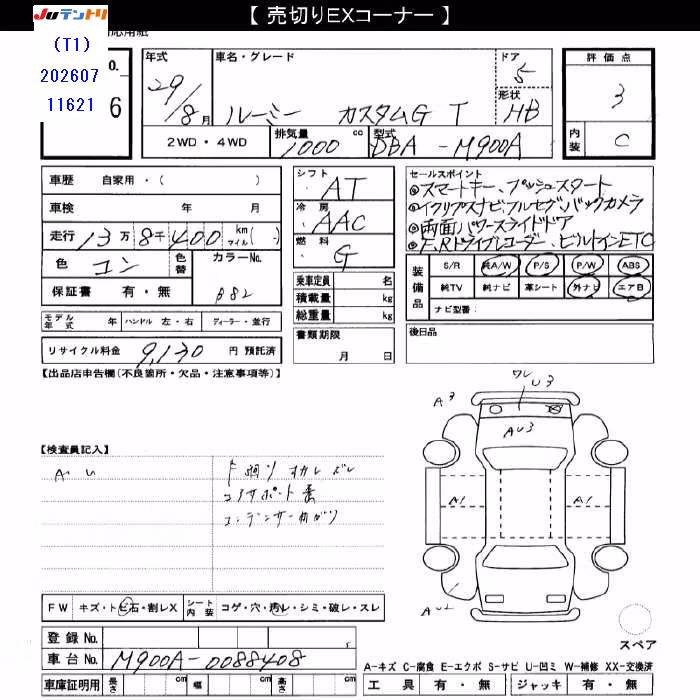 【 売切りEXコーナー 】
JUテントリ
(T1)
202607
11621
応用紙
O.
6
年式
29/8月
車名・グレード
ルーミー カスタムG T
ドア
5
形状
HB
評価点
3
内装
C
2WD・4WD
排気量
1000 cc
型式
DBA-M900A
車歴 自家用・( )
車検 年 月
走行 13万8千400 km マイル( )
色 コン 色替 カラーNo.
B82
保証書 有・無
モデル年式 年 ハンドル 左・右 ディーラー・並行
リサイクル料金 9,130 円 預託済
シフト
AT
冷房
AAC
燃料
G
乗車定員 名
積載量 kg
総重量 kg
書類期限
月 日
セールスポイント
◎スマートキー、プッシュスタート
◎イクリプスナビ、フルセグ、バックカメラ
◎両面パワースライドドア
◎F.Rドライブレコーダー、ビルトインETC
装備品
S/R 純A/W P/S P/W ABS
純TV 純ナビ 革シート 外ナビ エアB
ナビ型番:
後日品
【出品店申告欄(不良箇所・欠品・注意事項等)】
【検査員記入】
A U
下廻り
コアサポート
コンデンサー曲がり
ワレ
U3
A3
AU3
A1
A1
AU2
スペア
FW キズ・トビ石・割レX シート内装 コゲ・穴・汚レ・シミ・破レ・スレ
登録No.
車台No. M900A-0088408
車庫証明用 長さ cm 幅 cm 高さ cm
A-キズ C-腐食 E-エクボ S-サビ U-凹ミ W-補修 XX-交換済
工具 有・無 ジャッキ 有・無